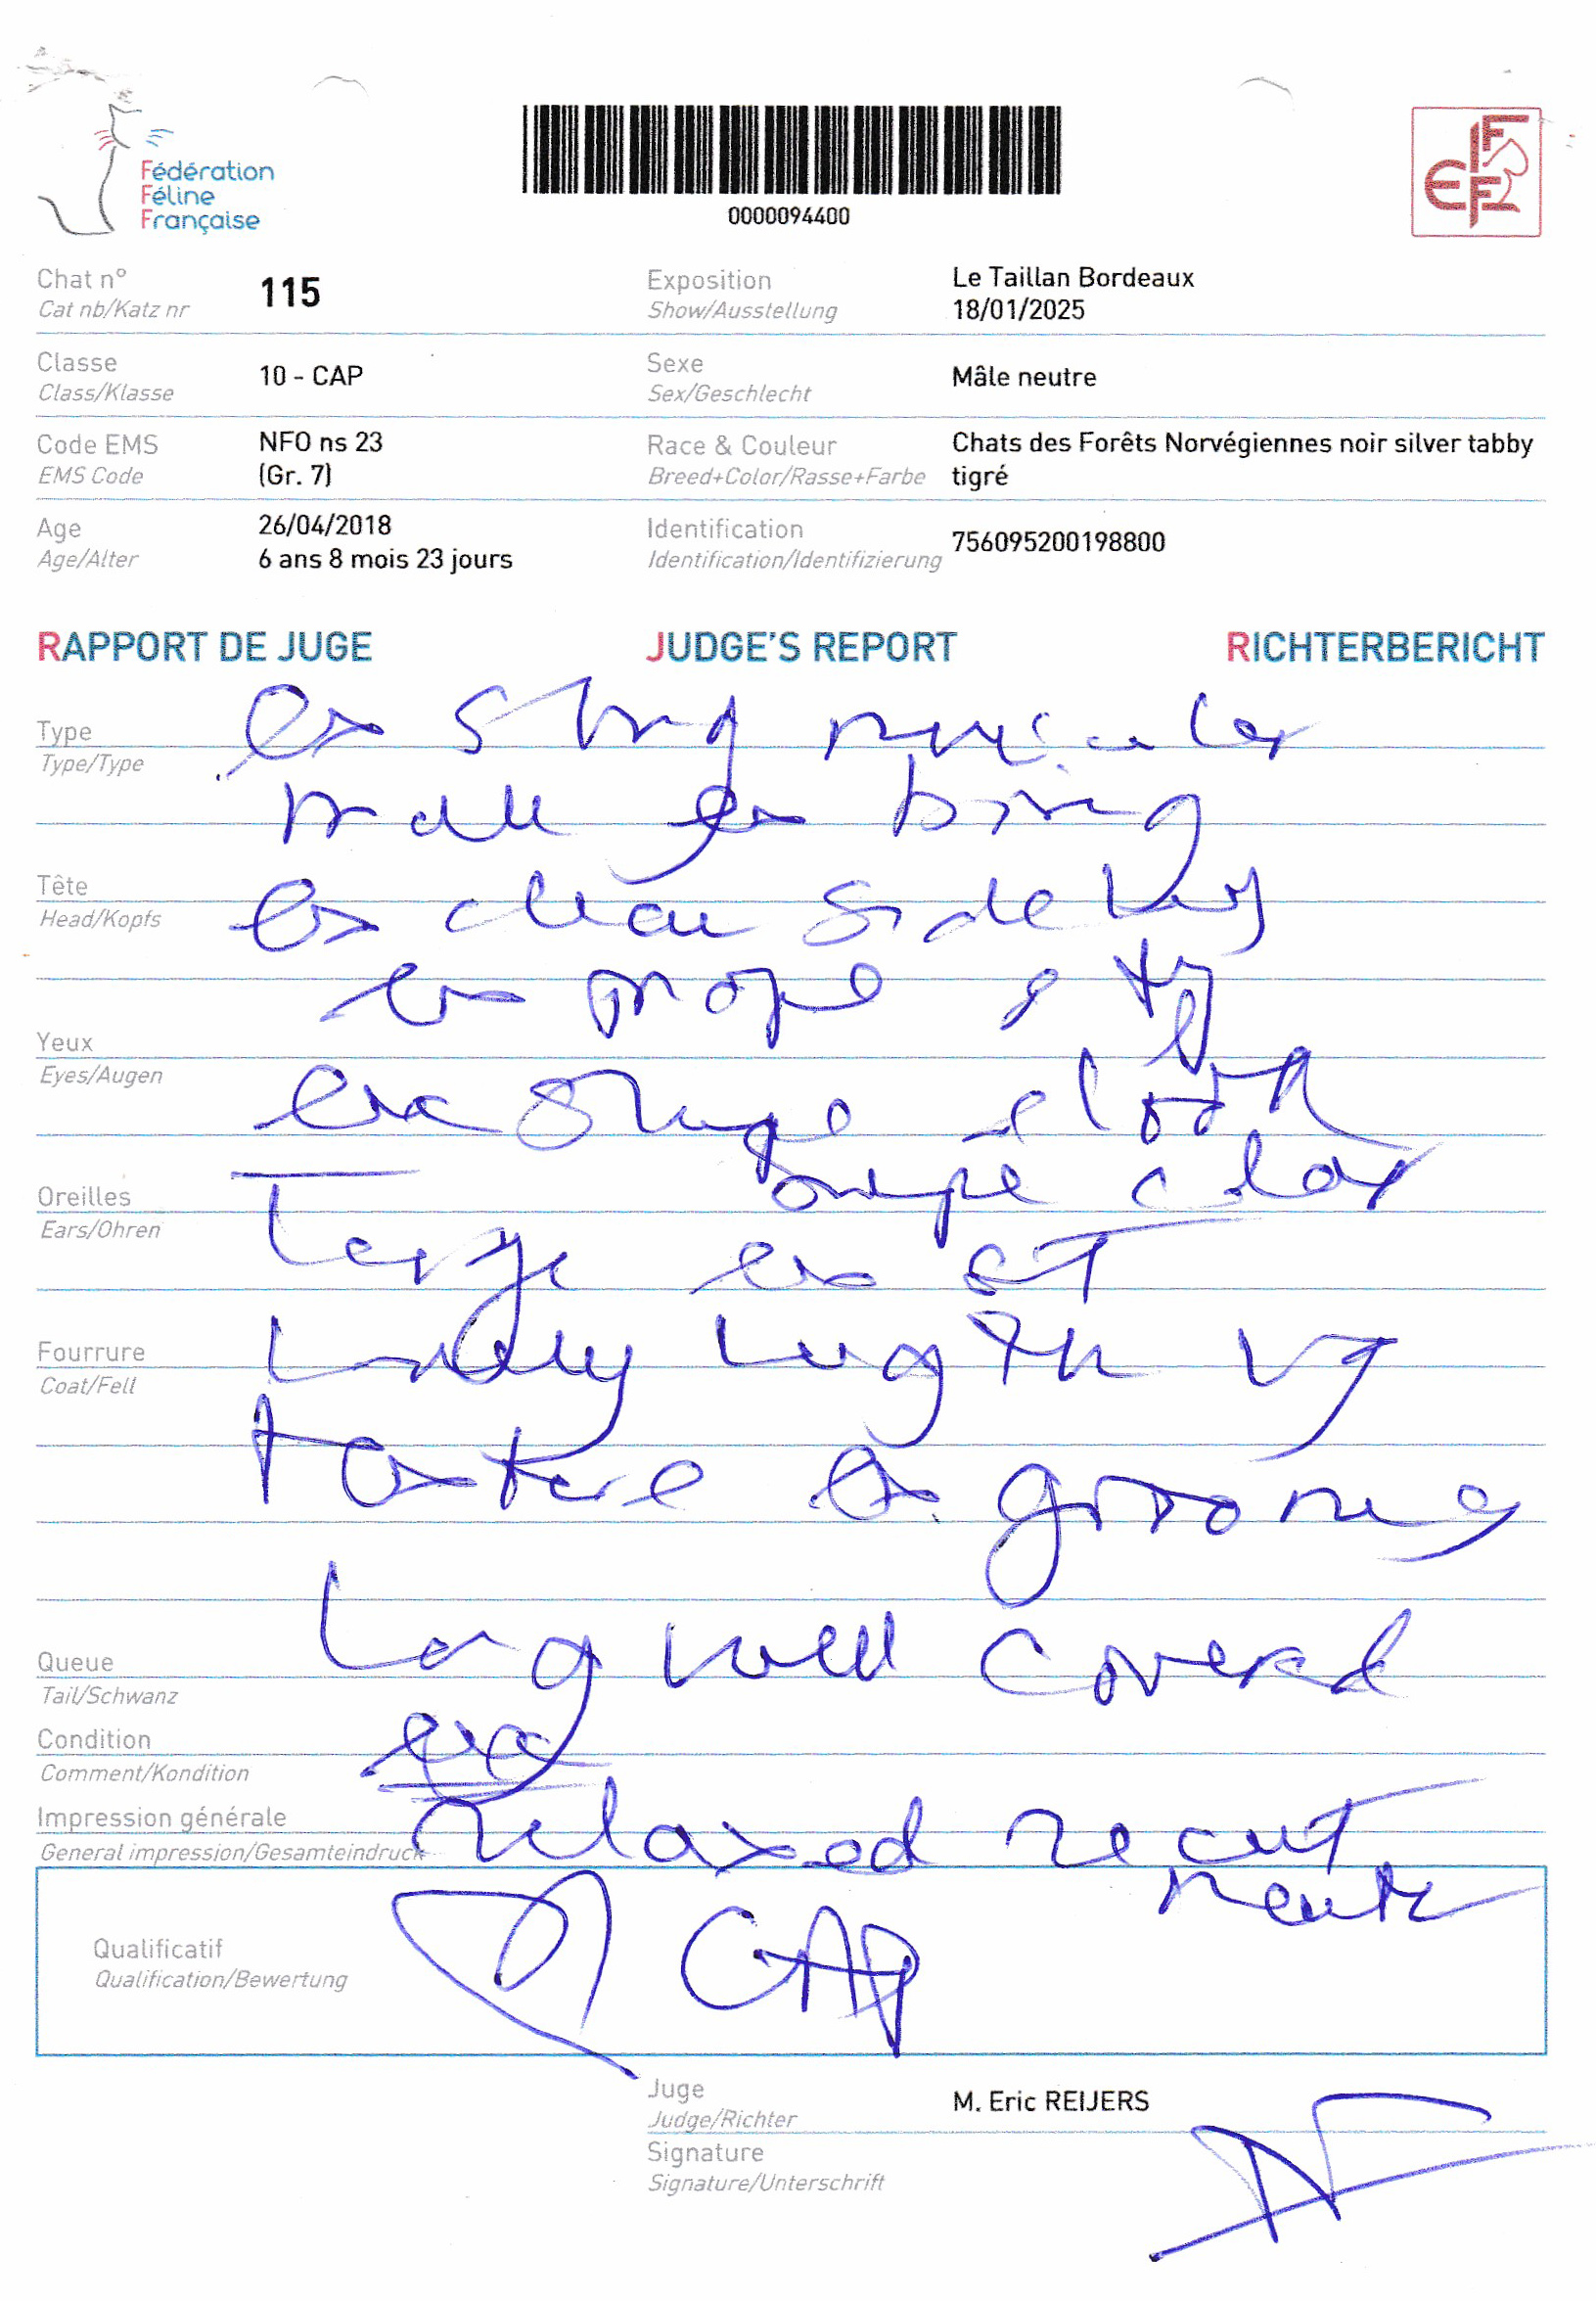 Fédération
Féline
Française
0000094400
FIFe
Chat n° 115 Exposition Le Taillan Bordeaux
Cat nb/Katz nr Show/Ausstellung 18/01/2025
Classe 10 - CAP Sexe Mâle neutre
Class/Klasse Sex/Geschlecht
Code EMS NFO ns 23 Race & Couleur Chats des Forêts Norvégiennes noir silver tabby
EMS Code (Gr. 7) Breed+Color/Rasse+Farbe tigré
Age 26/04/2018 Identification 756095200198800
Age/Alter 6 ans 8 mois 23 jours Identification/Identifizierung
RAPPORT DE JUGE JUDGE'S REPORT RICHTERBERICHT
Type ex strong muscular
Type/Type
male ex boning
Tête ex
Head/Kopfs
ex profile
Yeux
Eyes/Augen exc shape
color
Oreilles
Ears/Ohren Large ex set
Fourrure lovely length vg
Coat/Fell
texture ex grooming
Queue Long well covered
Tail/Schwanz
Condition exc
Comment/Kondition
Impression générale relaxed
General impression/Gesamteindruck
neuter
Qualificatif CAP
Qualification/Bewertung
Juge M. Eric REIJERS
Judge/Richter
Signature
Signature/Unterschrift